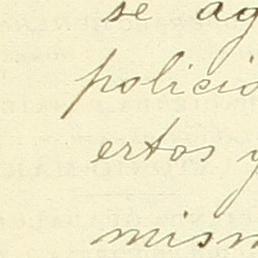 se ag
policia
ertos y
mism